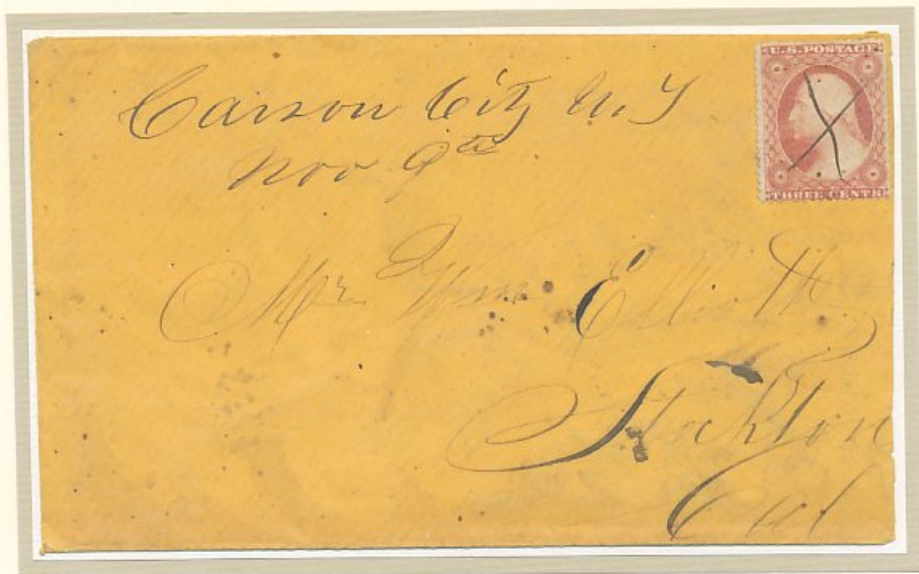 Carson City U. T
Nov 9th
U.S. POSTAGE
THREE CENTS
Mr Wm Elliott
Stockton
Cal